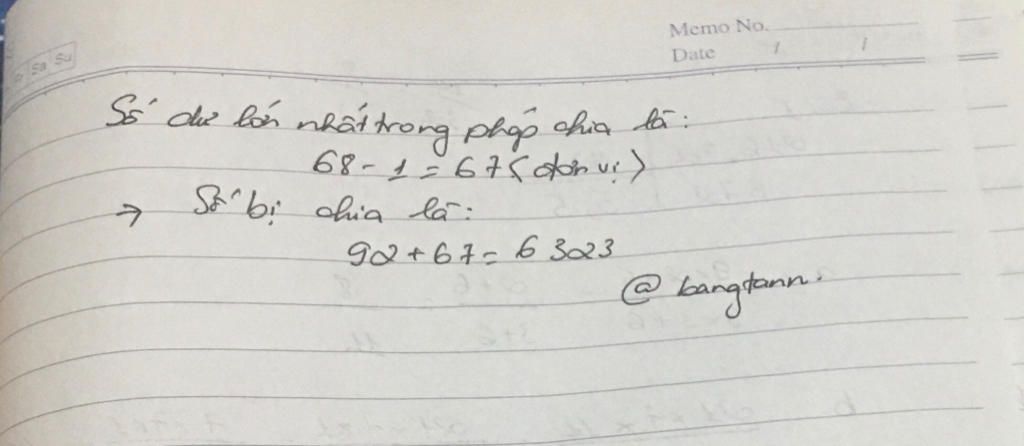 Memo No.
Date / /
Sa Su
Số dư lớn nhất trong phép chia là:
68 - 1 = 67 (đơn vị)
→ Số bị chia là:
92 + 67 = 6323
@ bangtann.